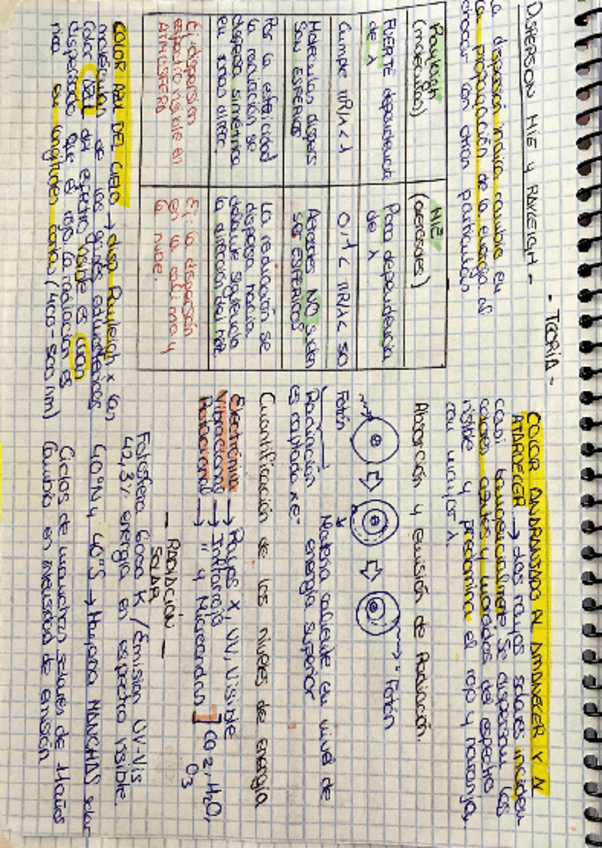 - TEORÍA -
DISPERSION MIE Y RAYLEIGH -
La dispersión implica cambio en
la propagación de la energía al
chocar con otras partículas
Rayleigh
(moléculas)
MIE
(aerosoles)
FUERTE dependencia
de λ
Poca dependencia
de λ
Cumple πR/λ<1
0,1 < πR/λ < 50
Moléculas dispers
SON ESFERICAS
Aerosoles NO suelen
ser ESFERICOS
Por la esfericidad
la radiación se
dispersa simétrica
en todas direcc
La radiación se
dispersa hacia
delante siguiendo
la dirección del
Ej: dispersión
espectro visible en
ATMÓSFERA
Ej: la dispersión
en la calima y
la nube.
COLOR AZUL DEL CIELO → disp Rayleigh x las
moléculas de los gases
Color azul del espectro visible es más
dispersado que el rojo, la radiación es
en longitudes cortas (400-500 nm)
COLOR ANARANJADO AL AMANECER Y A
ATARDECER → los rayos solares inciden
casi tangencialmente se dispersan los
colores azules y morados del espectro
visible y predomina el rojo y naranja.
con mayor λ
Absorción y emisión de Radiación.
e e e
Fotón
Fotón
Radiación
es captada x e-
Materia caliente en nivel de
energía superior
Cuantificación de los niveles de energía
Electrónica → Rayos X, UV, Visible
Vibracional → Infrarrojo
Rotacional → " y Microondas
CO2, H2O,
O3
- RADIACIÓN
SOLAR -
Fotosfera 6000 K / Emisión UV-Vis
42,3% energía en espectro visible.
40°N y 40°S → Mayoría MANCHAS solar
Ciclos de manchas solares de 11 años
Cambio en intensidad de emisión